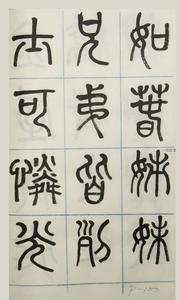 如春姊妹
兄弟皆列
土可憐光